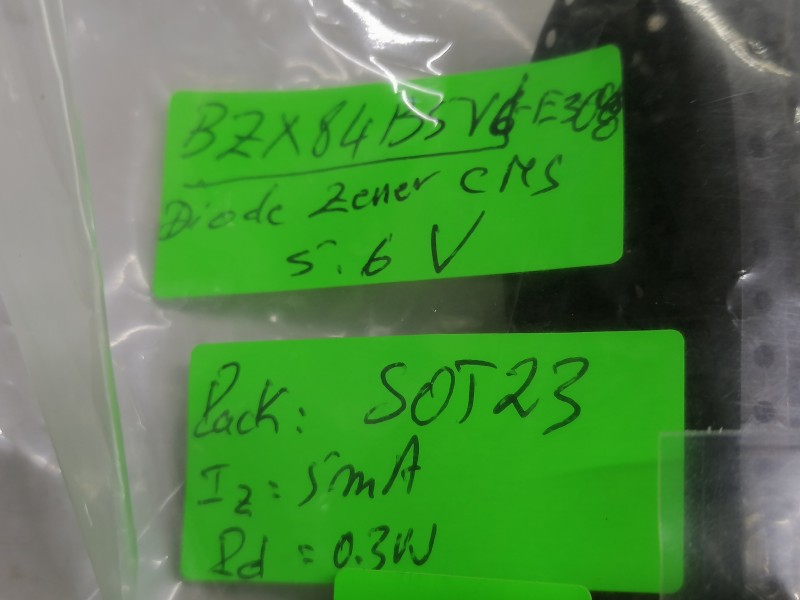 BZX84B5V6-E308
Diode Zener CMS
5.6 V
Pack: SOT23
Iz = 5mA
Pd = 0.3W